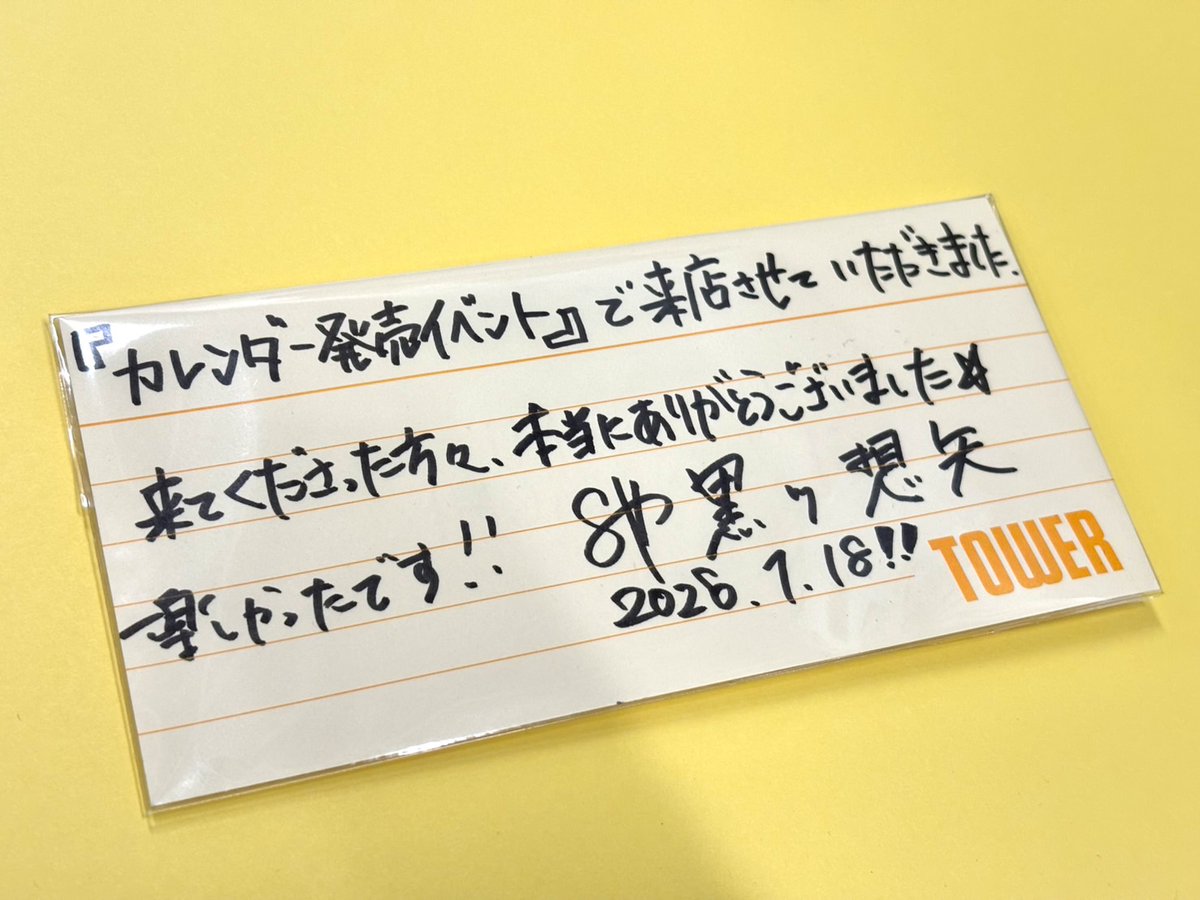 『カレンダー発売イベント』で来店させていただきました.
来てくださった方々、本当にありがとうございました☆
楽しかったです!!
黒 想矢
2026.7.18!!
TOWER